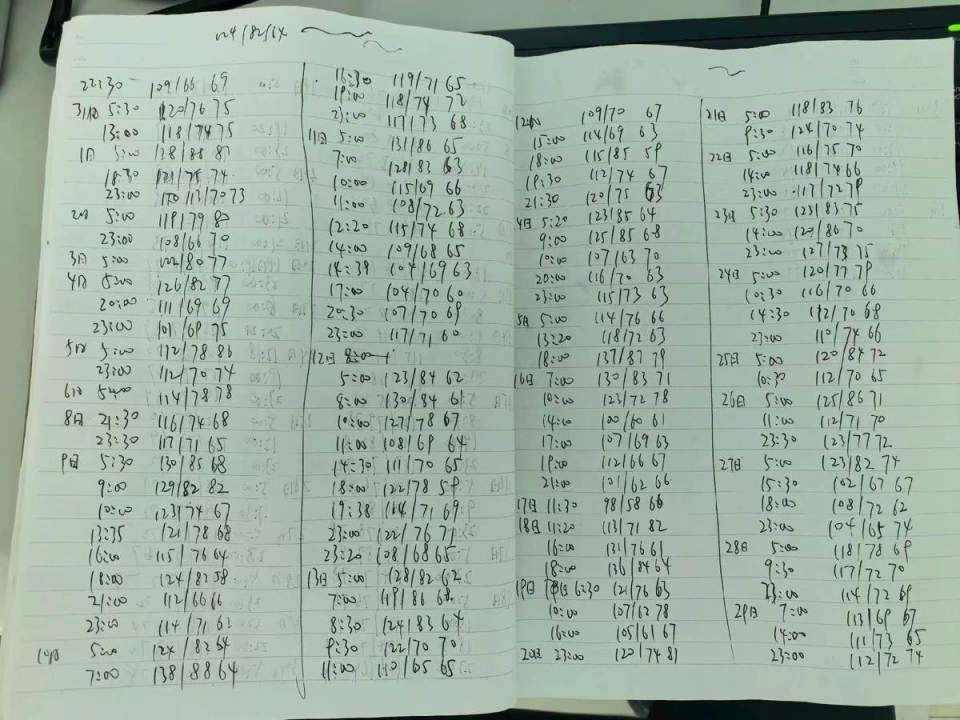 124/82/64
22:30 109/66 69
31日 5:30 120/76 75
13:00 118/74 75
1日 5:00 128/88 87
18:30 121/75 74
23:00 113/70 73
2日 5:00 119/79 82
23:00 108/66 70
3日 5:00 122/80 77
4日 5:00 126/82 77
20:00 111/69 69
23:00 101/69 75
5日 5:00 112/78 86
23:00 112/70 74
6日 5:00 114/78 78
8日 21:30 116/74 68
23:30 117/71 65
9日 5:30 130/85 68
9:00 129/82 82
10:00 123/74 67
13:35 121/78 68
16:00 115/76 64
18:00 124/82 58
21:00 112/66 66
23:00 114/71 63
10日 5:00 124/82 64
7:00 138/88 64
16:30 119/71 65
19:00 118/74 72
23:00 117/73 68
11日 5:00 131/86 65
7:00 128/83 63
10:00 115/69 66
11:00 108/72 63
12:20 115/74 68
14:00 109/68 65
14:38 104/69 63
17:00 104/70 60
20:30 107/70 69
23:00 117/71 60
12日 8:00
5:00 123/84 62
8:00 130/84 61
10:00 127/78 67
11:00 108/69 64
14:30 111/70 65
18:00 122/78 59
19:38 114/71 69
23:00 122/76 71
23:20 108/68 65
13日 5:00 128/82 62
7:00 119/86 68
8:30 124/83 64
9:30 122/70 70
11:00 110/65 65
12:00 109/70 67
15:00 114/69 63
18:00 115/85 59
19:30 112/74 67
21:30 120/75 63
4日 5:20 123/85 64
9:00 125/85 68
10:00 107/63 70
20:00 116/70 63
23:00 115/73 63
5日 5:00 114/76 66
13:20 118/72 63
18:00 137/87 79
16日 7:00 130/83 71
10:00 123/72 78
14:00 100/60 61
17:00 107/69 63
19:00 112/66 67
21:00 101/62 66
17日 11:30 98/58 66
18日 11:20 113/71 82
16:00 131/76 61
18:00 136/84 64
19日 6:30 121/76 63
10:00 107/62 78
16:00 105/61 67
20日 23:00 120/74 81
21日 5:00 118/83 76
9:30 124/70 74
22日 5:00 116/75 70
14:00 118/74 66
23:00 117/72 79
23日 5:30 123/83 75
14:00 123/86 70
23:00 127/73 75
24日 5:00 120/77 79
10:30 116/70 66
14:30 112/70 68
23:00 110/74 66
25日 5:00 120/84 72
10:30 112/70 65
26日 5:00 125/86 71
11:00 112/71 70
23:30 123/77 72
27日 5:00 123/82 74
15:30 102/67 67
18:00 108/72 62
23:00 104/65 74
28日 5:00 118/78 69
9:30 117/72 70
23:00 114/72 69
29日 7:00 113/69 67
14:00 111/73 65
23:00 112/72 74